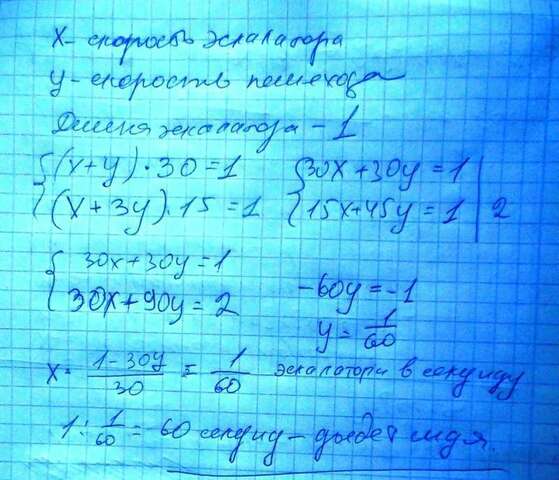 X - скорость эскалатора
y - скорость пешехода
Длина эскалатора - 1
{(x+y)·30=1 {30x+30y=1
(x+3y)·15=1 15x+45y=1 | 2
{30x+30y=1
30x+90y=2 -60y=-1
y=1/60
x=(1-30y)/30=1/60 эскалатора в секунду
1:1/60=60 секунд - стоя.